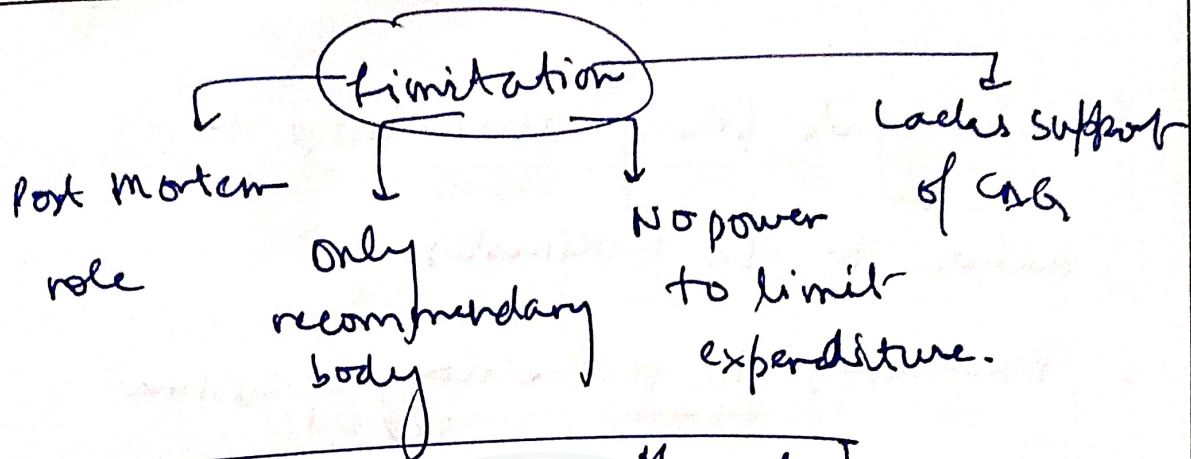 Limitation
Post Mortem
role
only
recommendary
body
No power
to limit
expenditure.
Lacks support
of CAG